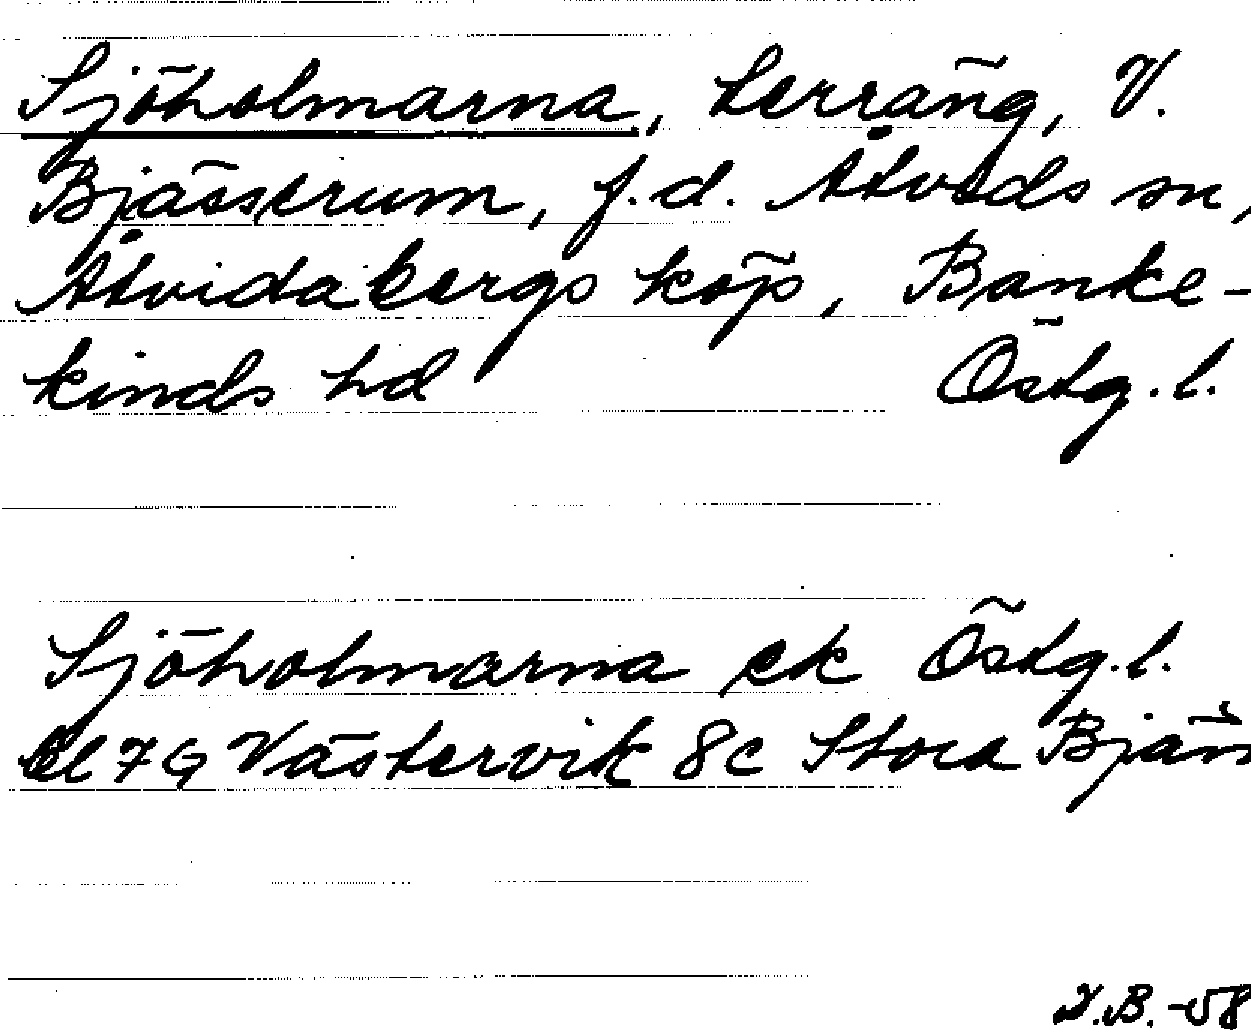 Sjöholmarna, terräng, V.
Bjässerum, f.d. Åtveds sn,
Åtvidabergs köp, Banke-
kinds hd Östg. l.
Sjöholmarna ek Östg. l.
bl 7G Västervik 8c Stora Bjäss
J.B. -58